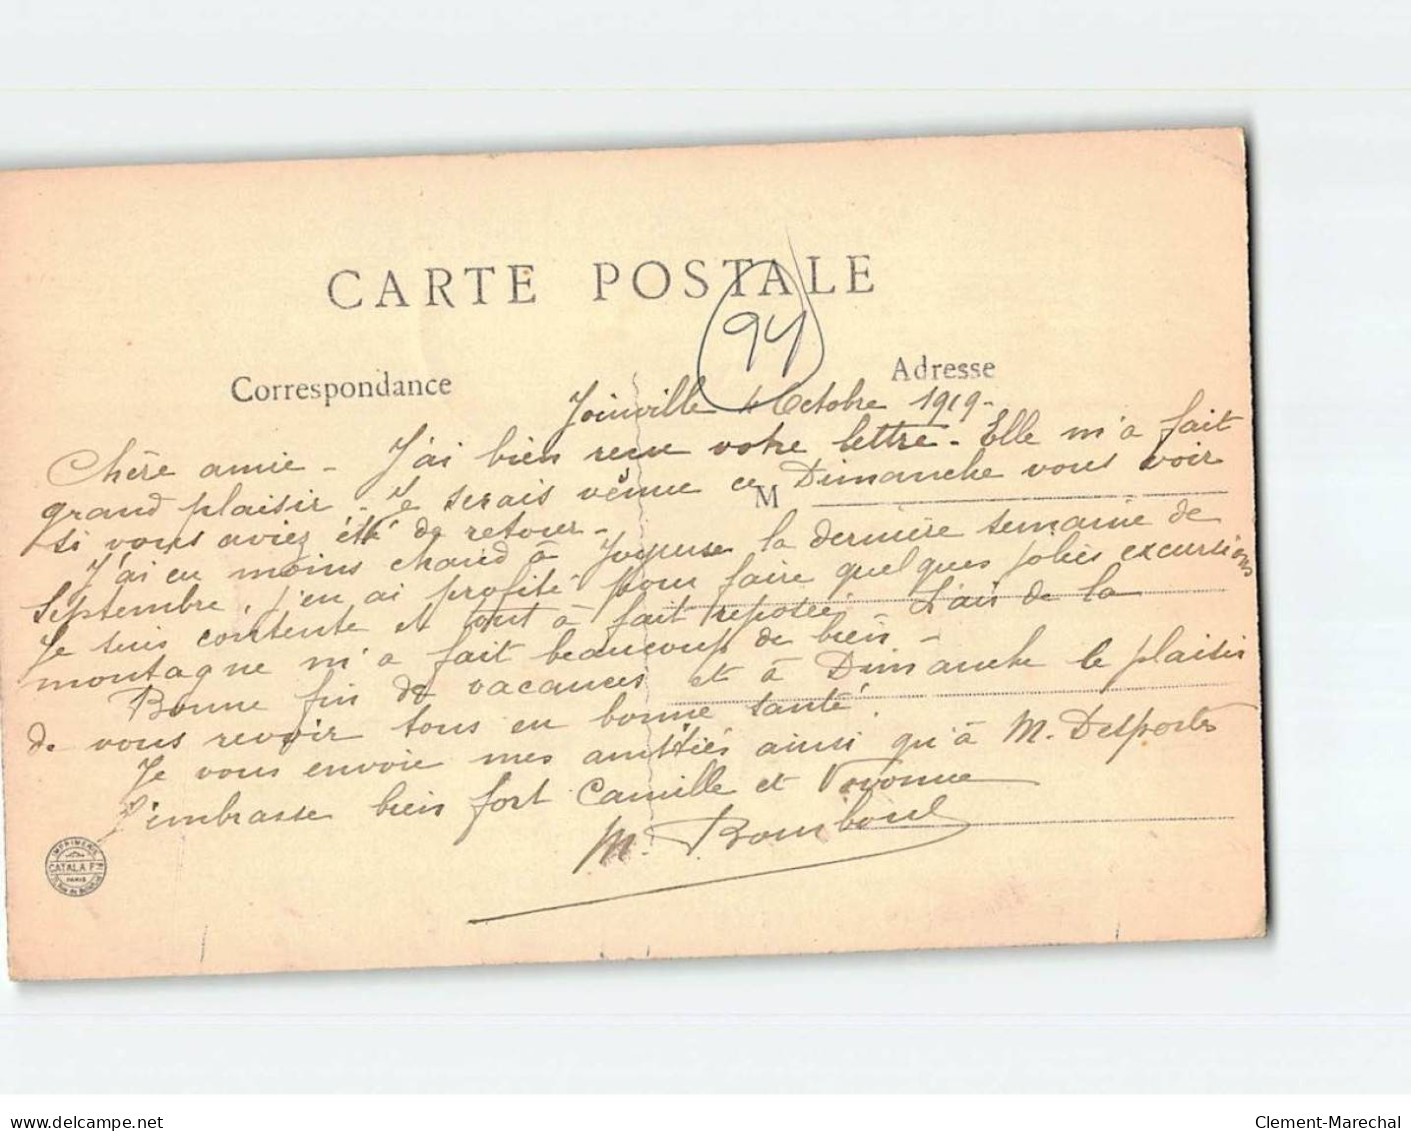 CARTE POSTALE
94
Correspondance
Adresse
Joinville 4 Octobre 1919-
Chère amie - J'ai bien reçu votre lettre - Elle m'a fait
grand plaisir - Je serais venue ce Dimanche vous voir
M
si vous aviez été de retour -
J'ai eu moins chaud à Joyeuse la dernière semaine de
Septembre, j'en ai profité pour faire quelques jolies excursions
Je suis contente et tout à fait reposée - L'air de la
montagne m'a fait beaucoup de bien -
Bonne fin de vacances et à Dimanche le plaisir
de vous revoir tous en bonne santé.
Je vous envoie mes amitiés ainsi qu'à M. Desportes
J'embrasse bien fort Camille et Yvonne
M.
IMPRIMERIE
CATALA Frs
PARIS
Clement-Marechal